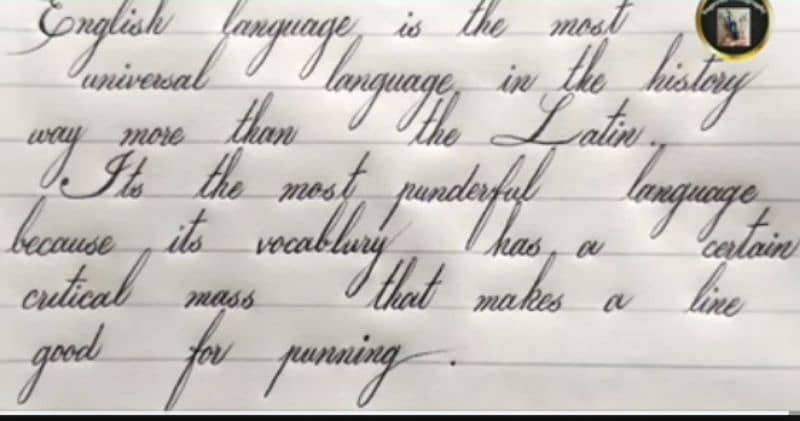 English language is the most
universal language in the history
way more than the Latin.
Its the most punderful language
because its vocablury has a certain
critical mass that makes a line
good for punning.